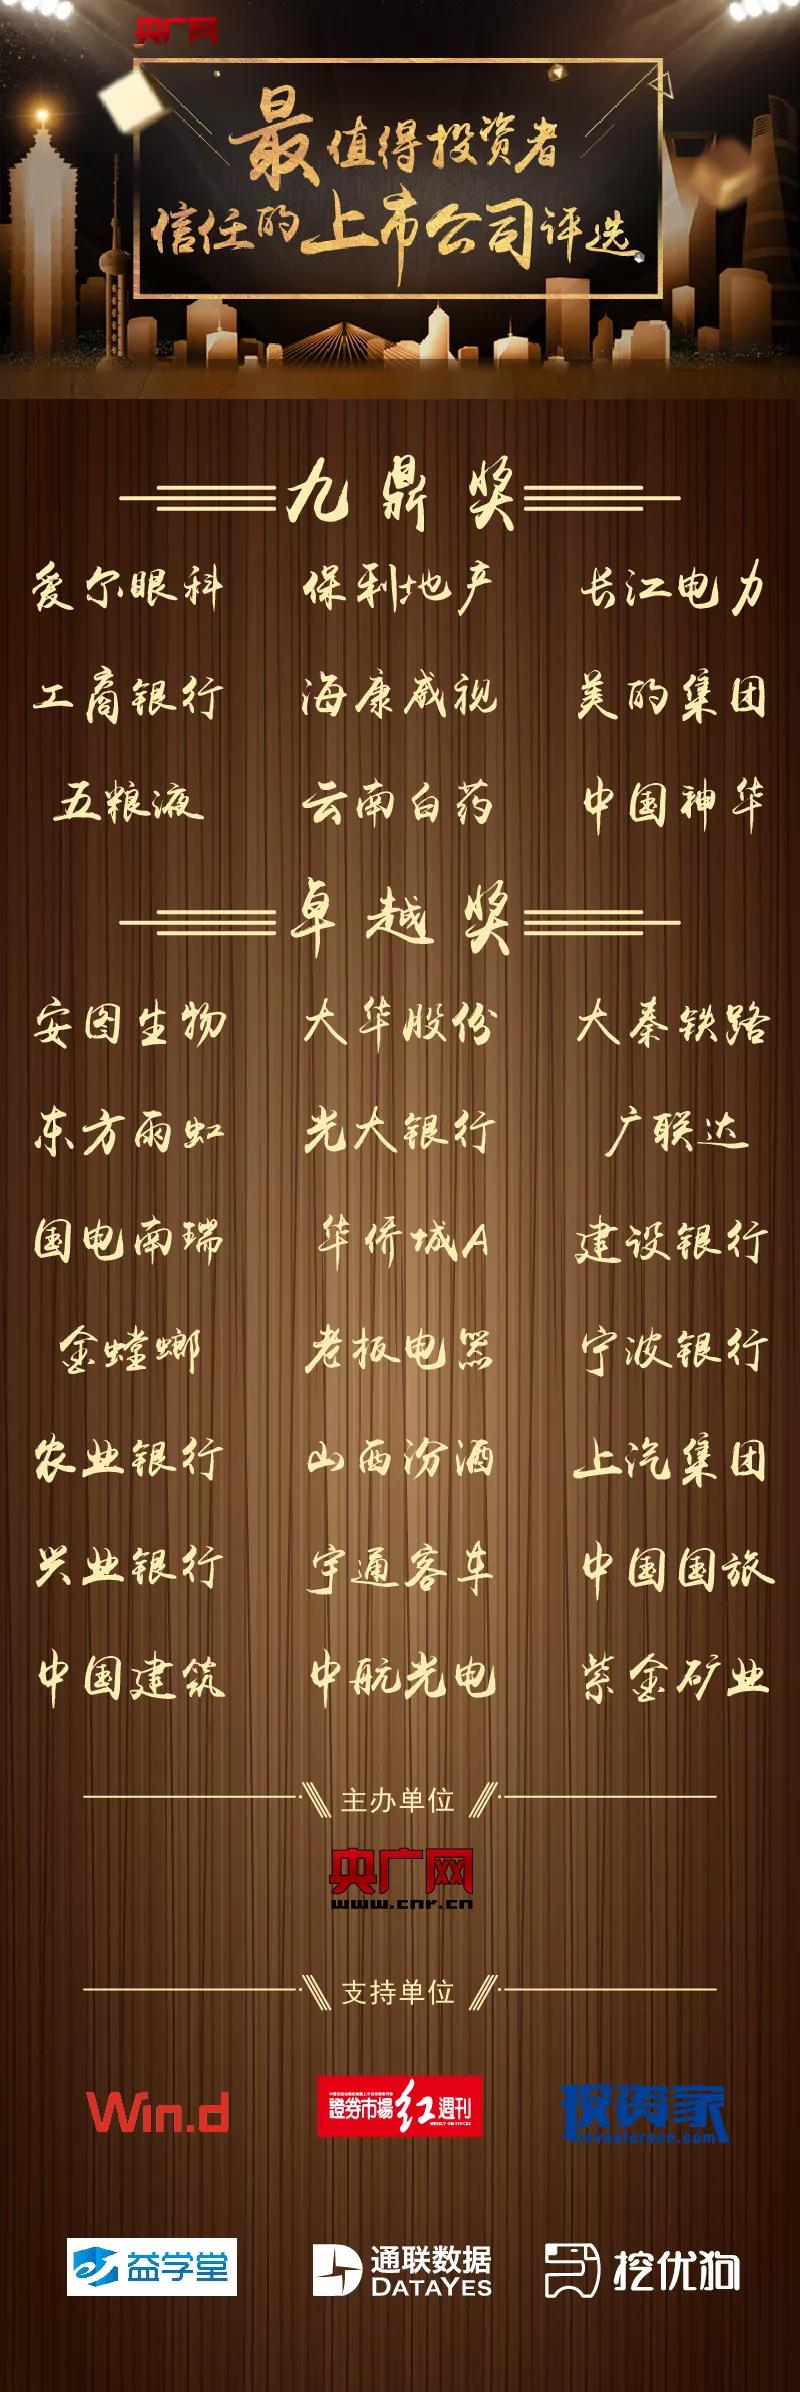 央广网
最值得投资者
信任的上市公司评选
九鼎奖
爱尔眼科 保利地产 长江电力
工商银行 海康威视 美的集团
五粮液 云南白药 中国神华
卓越奖
安图生物 大华股份 大秦铁路
东方雨虹 光大银行 广联达
国电南瑞 华侨城A 建设银行
金螳螂 老板电器 宁波银行
农业银行 山西汾酒 上汽集团
兴业银行 宇通客车 中国国旅
中国建筑 中航光电 紫金矿业
主办单位
央广网
www.cnr.cn
支持单位
Win.d 證券市場 红 週刊 投资家
WEEKLY ON STOCKS
益学堂 通联数据 挖优狗
DATAYES